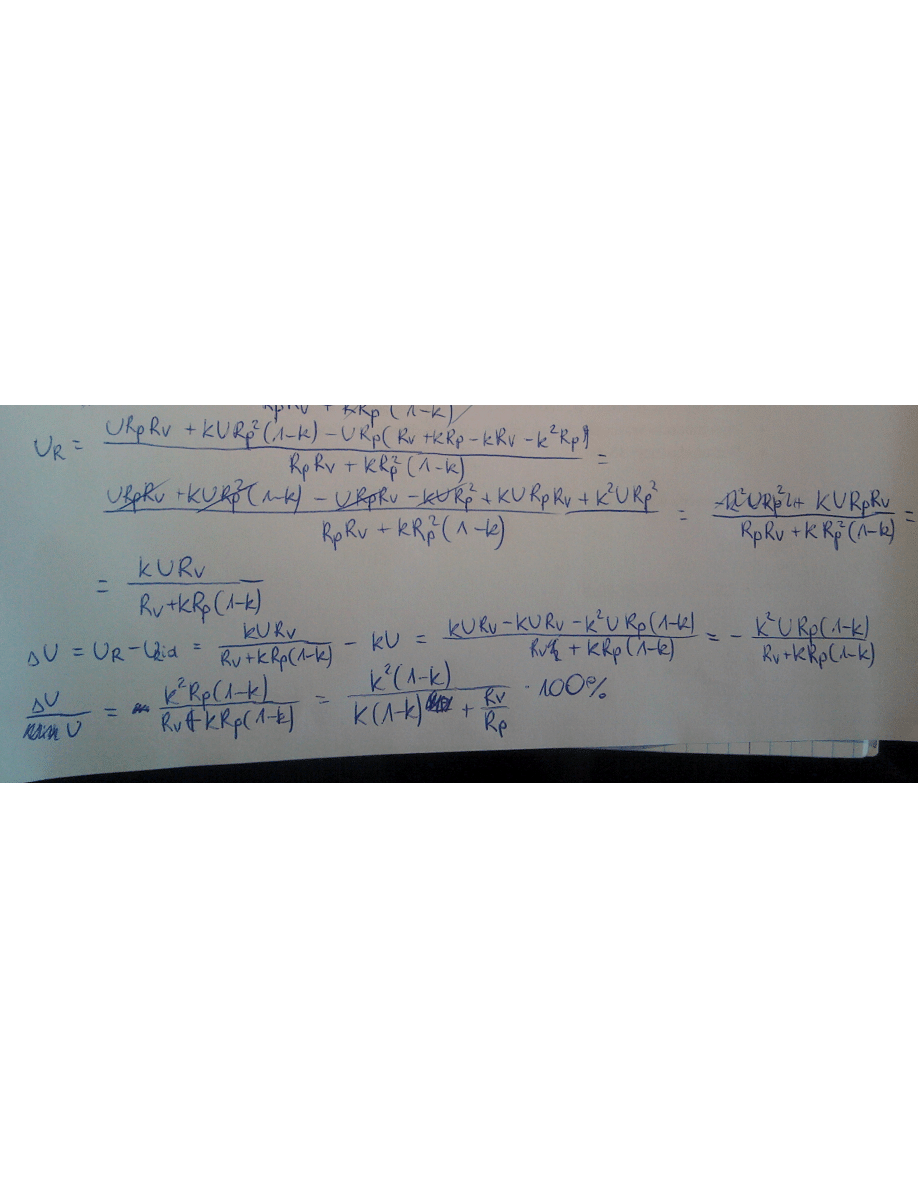 RpRv + kRp²(1-k)
U_R = (URpRv + kURp²(1-k) - URp(Rv + kRp - kRv - k²Rp)) / (RpRv + kRp²(1-k)) =
(URpRv + kURp²(1-k) - URpRv - kURp² + kURpRv + k²URp²) / (RpRv + kRp²(1-k)) = (-k²URp² + kURpRv) / (RpRv + kRp²(1-k)) =
= kURv / (Rv + kRp(1-k))
ΔU = U_R - U_id = kURv / (Rv + kRp(1-k)) - kU = (kURv - kURv - k²URp(1-k)) / (Rv + kRp(1-k)) = - k²URp(1-k) / (Rv + kRp(1-k))
ΔU / U = k²Rp(1-k) / (Rv + kRp(1-k)) = k²(1-k) / (k(1-k) + Rv/Rp) · 100%